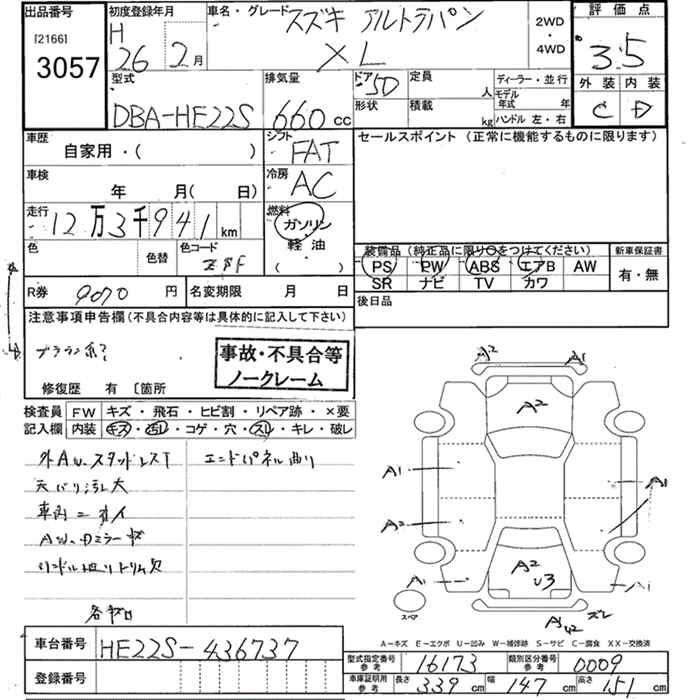 出品番号
[2166]
3057
初度登録年月
H
26 2月
車名・グレード スズキ アルトラパン
XL
2WD
・
4WD
評価点
3.5
外装 内装
C D
型式
DBA-HE22S
排気量
660 cc
ドア 5D
形状
定員 人
積載 kg
ディーラー・並行
モデル年式 年
ハンドル 左・右
車歴
自家用・( )
シフト
FAT
セールスポイント (正常に機能するものに限ります)
車検
年 月( 日)
冷房
AC
走行
12万3千941 km
燃料
ガソリン
軽油
( )
色
色替
色コード
R券 9070 円
名変期限 月 日
装備品 (純正品に限り○をつけてください)
PS PW ABS エアB AW
SR ナビ TV カワ
新車保証書
有・無
後日品
注意事項申告欄 (不具合内容等は具体的に記入して下さい)
事故・不具合等
ノークレーム
修復歴 有 〔箇所
検査員 FW キズ・飛石・ヒビ割・リペア跡・×要
記入欄 内装 キズ・汚レ・コゲ・穴・スレ・キレ・破レ
外AW.スタッドレスT
エンドパネル曲り
天バリ汚レ大
A2 A1
A2
A1 A1
A2
A1 A2 U3 A1
スペア
A-キズ E-エクボ U-凹み W-補修跡 S-サビ C-腐食 XX-交換済
車台番号 HE22S-436737
登録番号
型式指定番号 参考 16173
類別区分番号 参考 0009
車庫証明用 参考 長さ 339 cm 幅 147 cm 高さ 151 cm